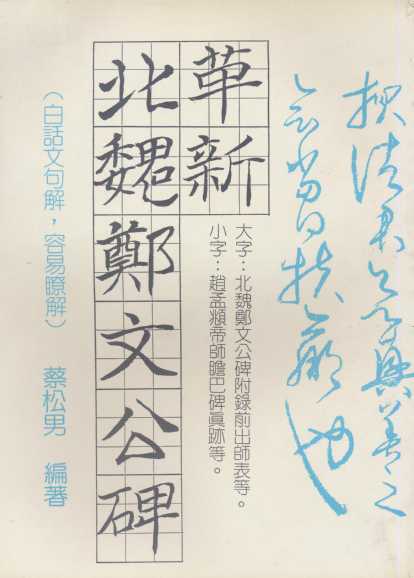 革新
北魏鄭文公碑
大字：北魏鄭文公碑附錄前出師表等。
小字：趙孟頫帝師膽巴碑眞跡等。
（白話文句解，容易瞭解）
蔡松男 編著